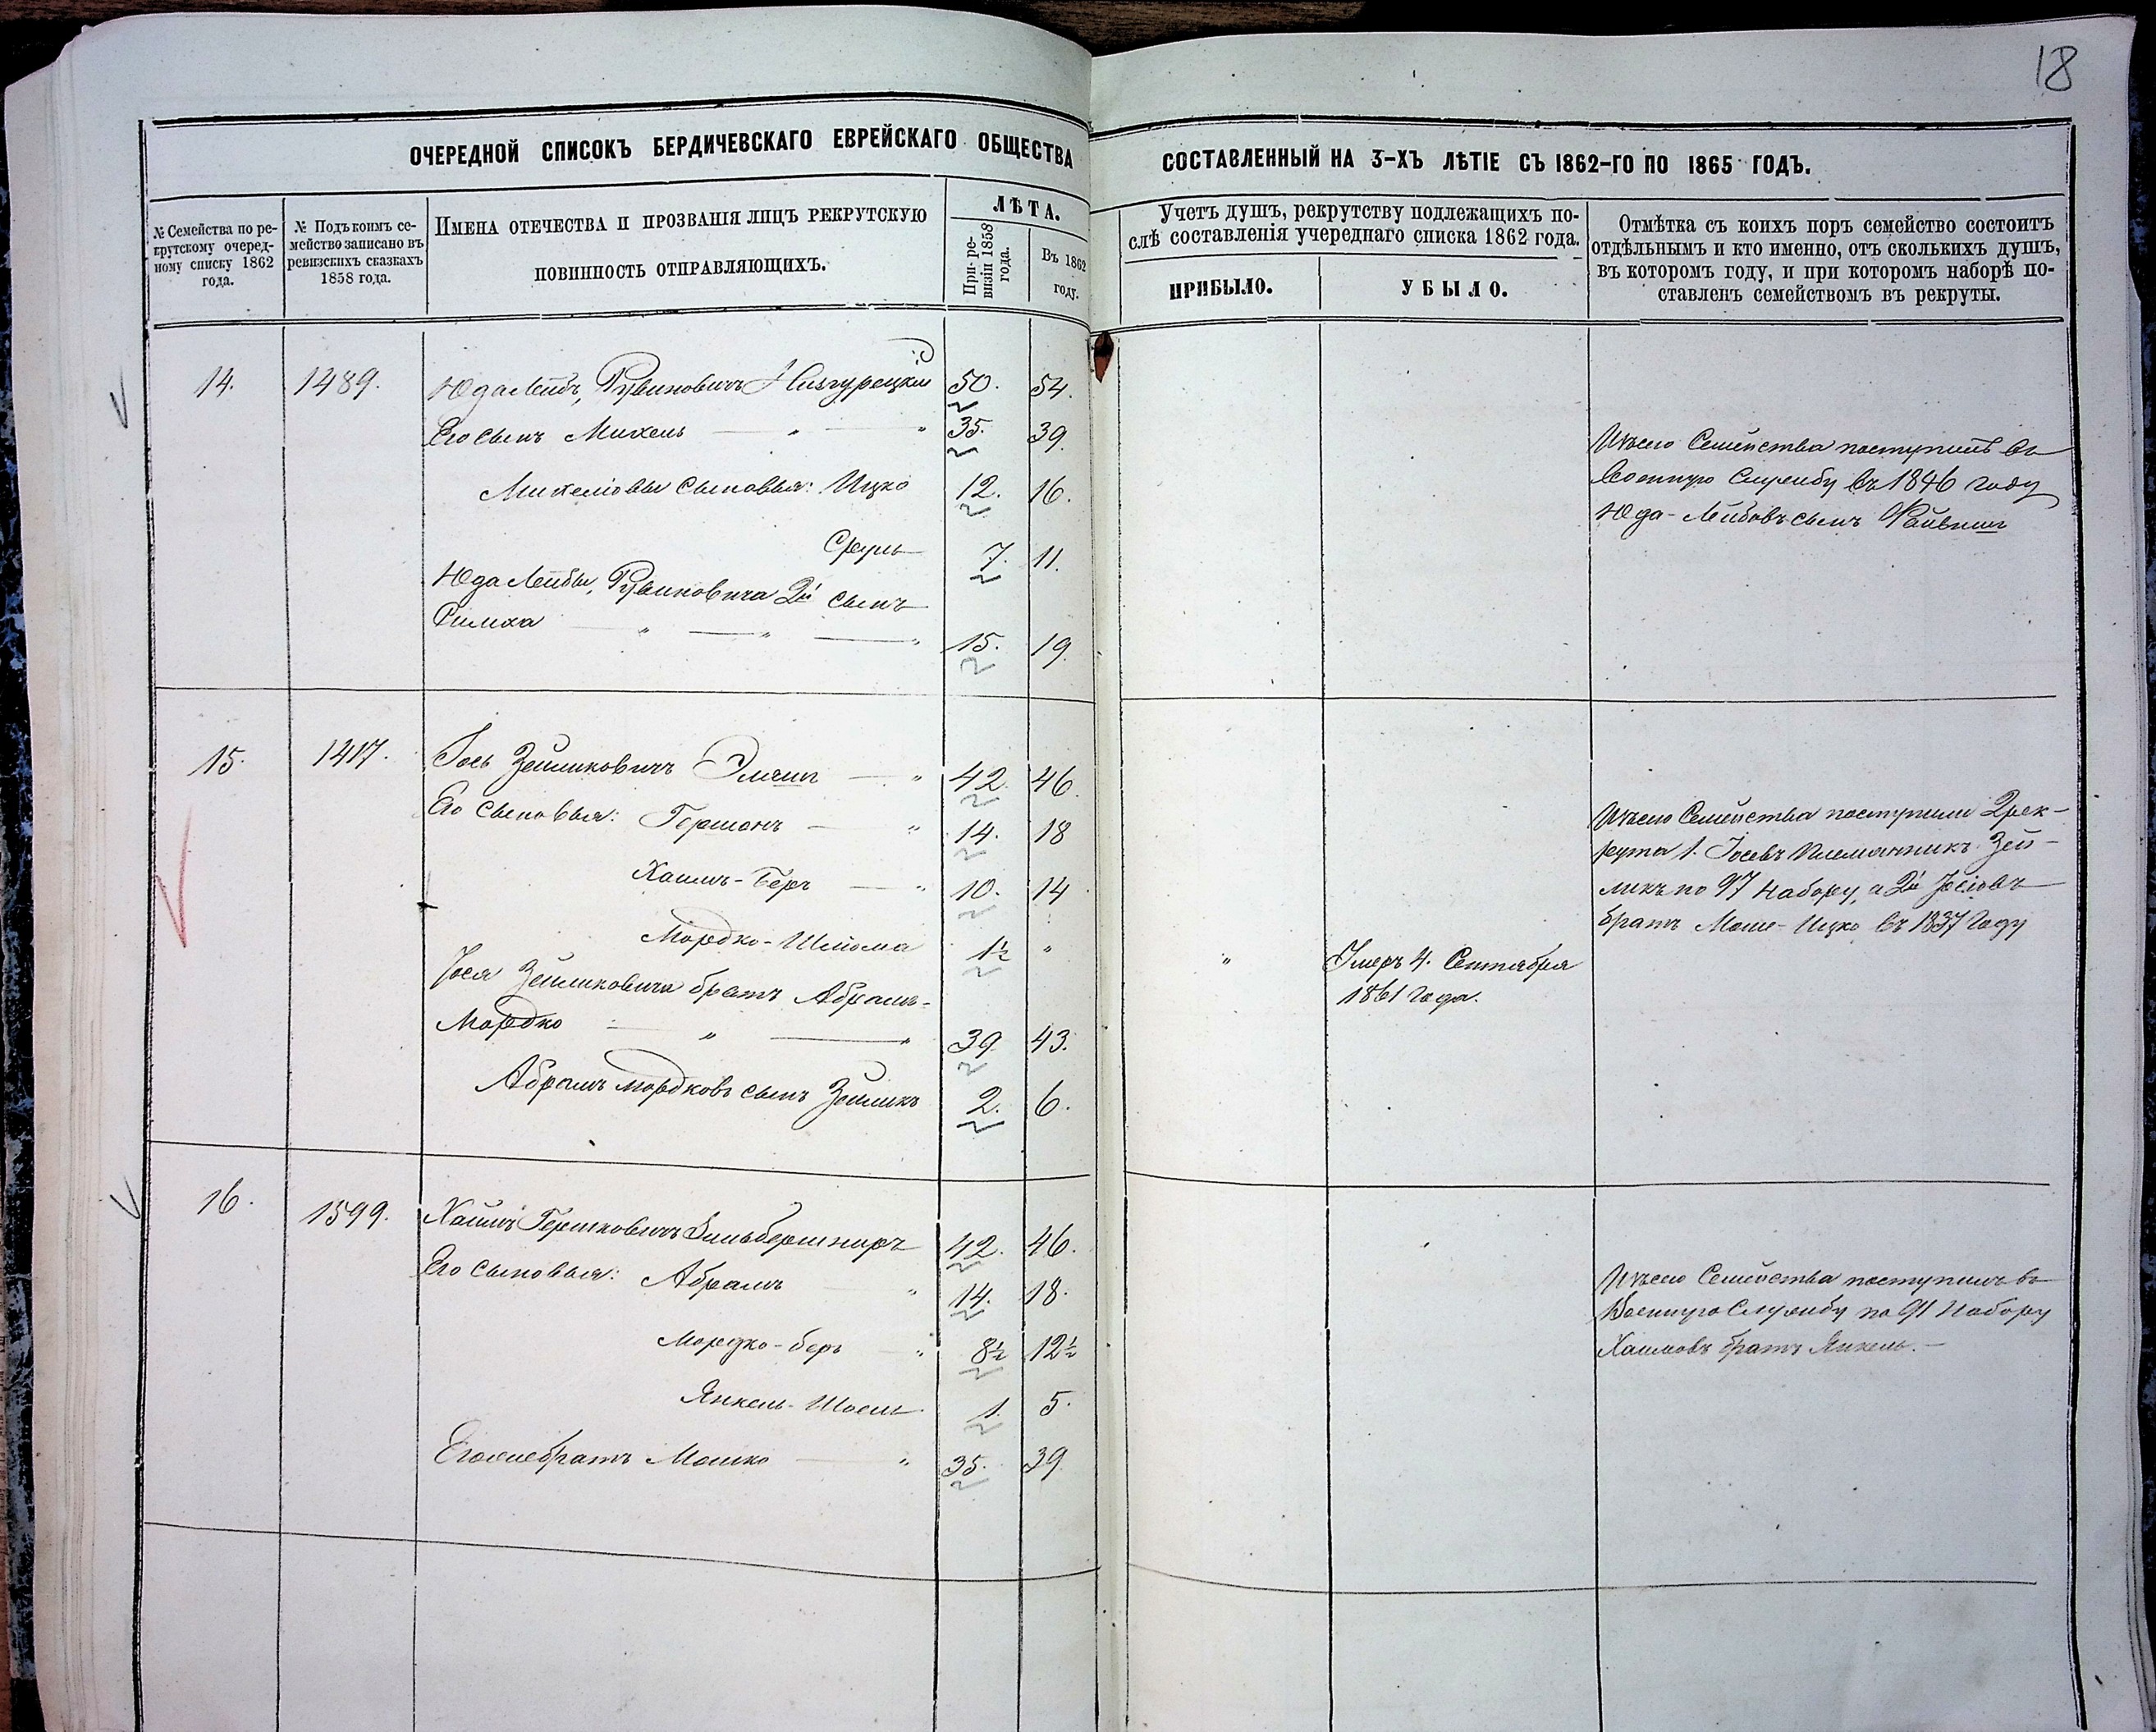 18
ОЧЕРЕДНОЙ СПИСОКЪ БЕРДИЧЕВСКАГО ЕВРЕЙСКАГО ОБЩЕСТВА
СОСТАВЛЕННЫЙ НА 3-ХЪ ЛѢТІЕ СЪ 1862-ГО ПО 1865 ГОДЪ.
№ Семейства по ре-
крутскому очеред-
ному списку 1862
года.
№ Подъ коимъ се-
мейство записано въ
ревизскихъ сказкахъ
1858 года.
ИМЕНА ОТЕЧЕСТВА И ПРОЗВАНІЯ ЛИЦЪ РЕКРУТСКУЮ
ПОВИННОСТЬ ОТПРАВЛЯЮЩИХЪ.
ЛѢТА.
При ре-
визіи 1858
года.
Въ 1862
году.
Учетъ душъ, рекрутству подлежащихъ по-
слѣ составленія учереднаго списка 1862 года.
ПРИБЫЛО.
УБЫЛО.
Отмѣтка съ коихъ поръ семейство состоитъ
отдѣльнымъ и кто именно, отъ сколькихъ душъ,
въ которомъ году, и при которомъ наборѣ по-
ставленъ семействомъ въ рекруты.
14. 1489. Юда Лейбъ, Рувиновичъ Низгурецкій 50. 54.
Его сынъ Михель 35. 39.
Михелювы сыновья: Ицко 12. 16.
Сруль 7. 11.
Юда Лейбы, Рувиновича 2й сынъ
Симха 15. 19.
Изъ сего Семейства поступилъ въ
Военную Службу въ 1846 году
Юда-Лейбовъ сынъ Файвишъ
15. 1417. Іось Зейликовичъ 42. 46.
Его сыновья: Гершонъ 14. 18
Хаимъ-Беръ 10. 14
Мордко-Шлома 1½ "
Іося Зейликовича братъ Абрамъ-
Мордко 39. 43.
Абрамъ Мордковъ сынъ Зейликъ 2. 6.
" Умеръ 4. Сентября
1861 года.
Изъ сего Семейства поступили 2 рек-
рута 1. Іосевъ племянникъ Зей-
ликъ по 97 набору, а 2й Іосіовъ
братъ Моше-Ицко въ 1837 году
16. 1599. Хаимъ Гершковичъ Зильбершпиръ 42. 46.
Его сыновья: Абрамъ 14. 18.
Мордко-беръ 8½ 12½
Янкель-Шоель 1. 5.
Его же братъ Мошко 35. 39
Изъ сего Семейства поступилъ въ
Военную Службу по 91 набору
Хаимовъ братъ Янкель.